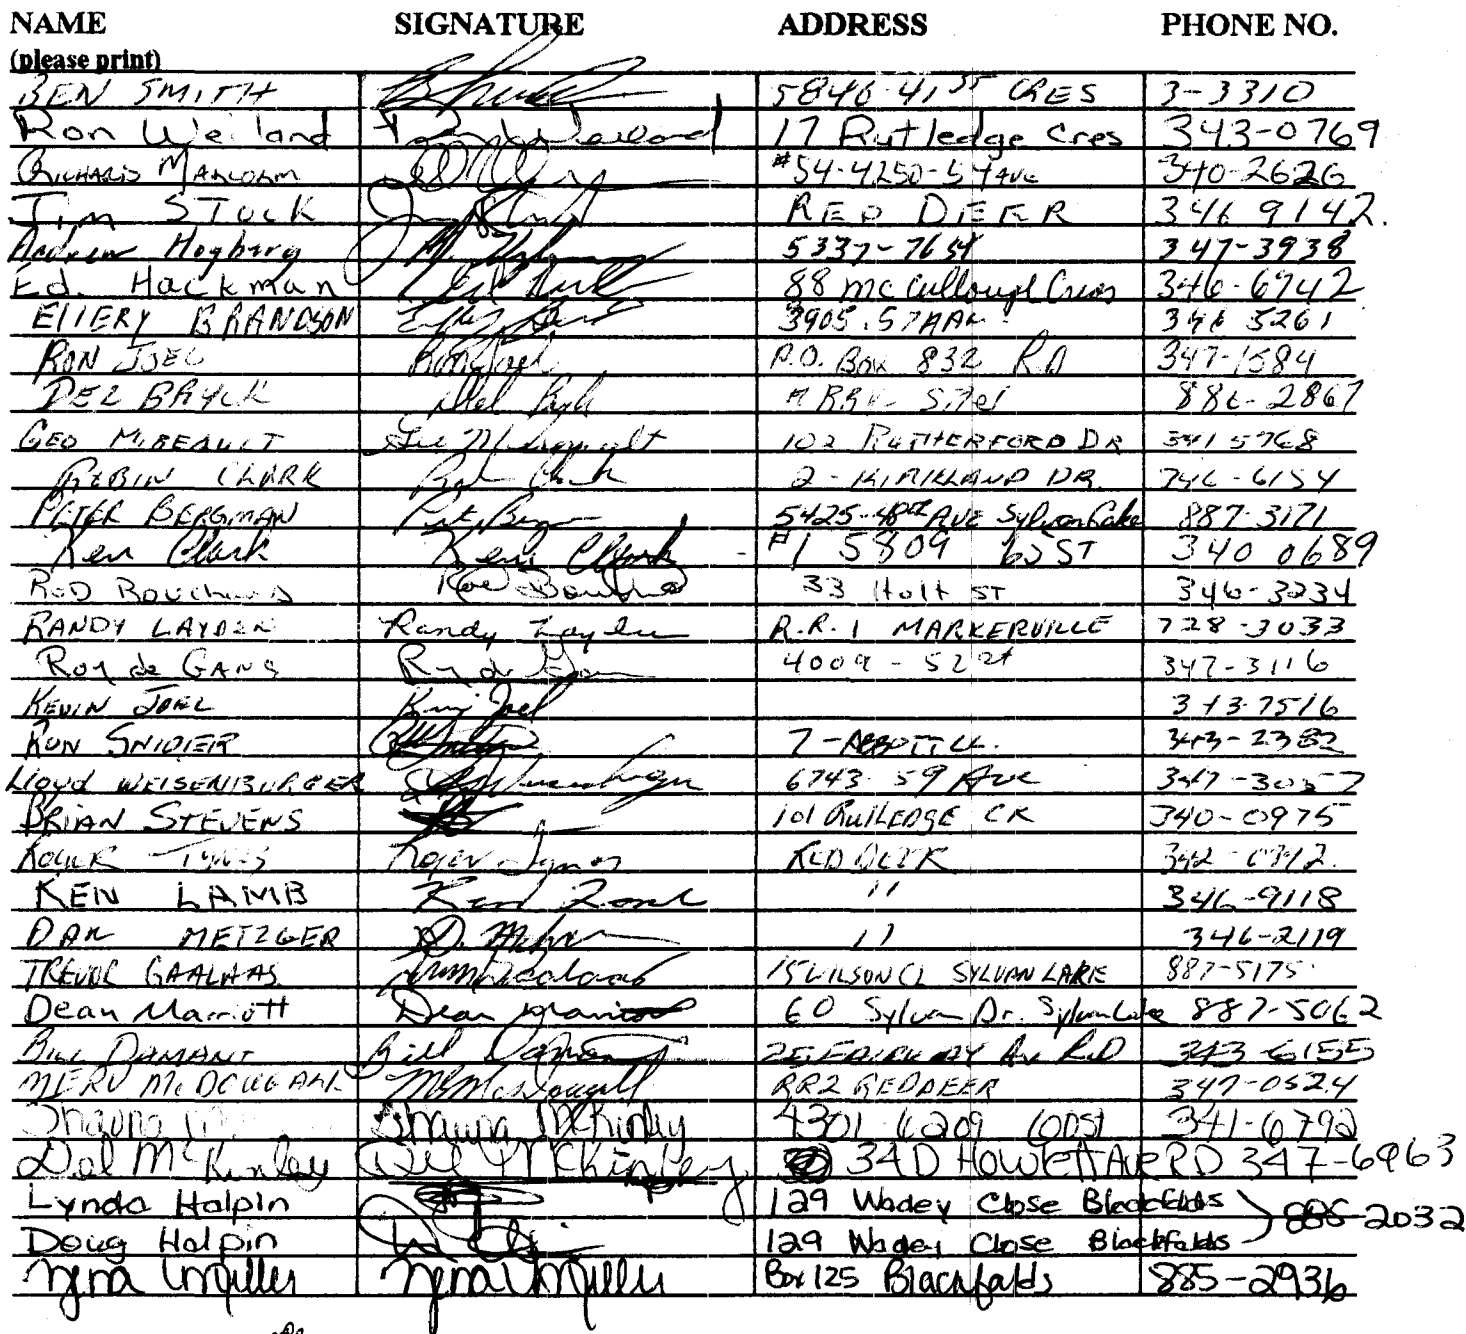 NAME SIGNATURE ADDRESS PHONE NO.
(please print)
BEN SMITH 5846-41 ST CRES 3-3310
Ron Weiland Ron Weiland 17 Rutledge Cres 343-0769
RICHARD #54-4250-54 AVE 340-2626
Jim STOCK RED DEER 346 9142.
Andrew Hogberg 5337-76 St 347-3938
Ed. Hackman 88 McCullough Cres 346-6742
EllERY BRANDSON 346 5261
RON JOEL Ron Joel P.O. Box 832 RD 347-1584
DEL BRYCK 886-2867
GEO MIREAULT 102 RUTHERFORD DR 341 5768
ROBIN CLARK 2 - KIRKLAND DR. 346-6154
PETER BERGMAN 5425-48 AVE Sylvan Lake 887-3171
Ken Clark Ken Clark #1 5809 ST 340 0689
ROD 33 Holt ST 346-3234
RANDY LAYDEN Randy Layden R.R. 1 MARKERVILLE 728-3033
Roy de GANS 4009 - 52 st 347-3116
KEVIN JOEL Joel 343-7516
RON SNIDER 7 - 343-2382
Lloyd WEISENBURGER 6743 59 Ave 347-3057
BRIAN STEVENS 101 RUTLEDGE CR 340-0975
ROGER Roger RED DEER
KEN LAMB Ken " 346-9118
DAN METZGER D. " 346-2119
TREVOR GAALAAS 15 WILSON CL SYLVAN LAKE 887-5175
Dean Marriott Dean Marriott 60 Sylvan Dr. Sylvan Lake 887-5062
BILL DAMANT Bill 25 FAIRWAY Av R.D 343-6155
MERV McDOUGALL McDougall RR2 RED DEER 347-0524
Shauna Shauna McKinley 4301-6209 341-6792
Del McKinley McKinley 34D Howlett Ave RD 347-6963
Lynda Halpin 129 Wadey Close Blackfalds 885-2032
Doug Halpin 129 Wadey Close Blackfalds
Miller Miller Box 125 Blackfalds 885-2936